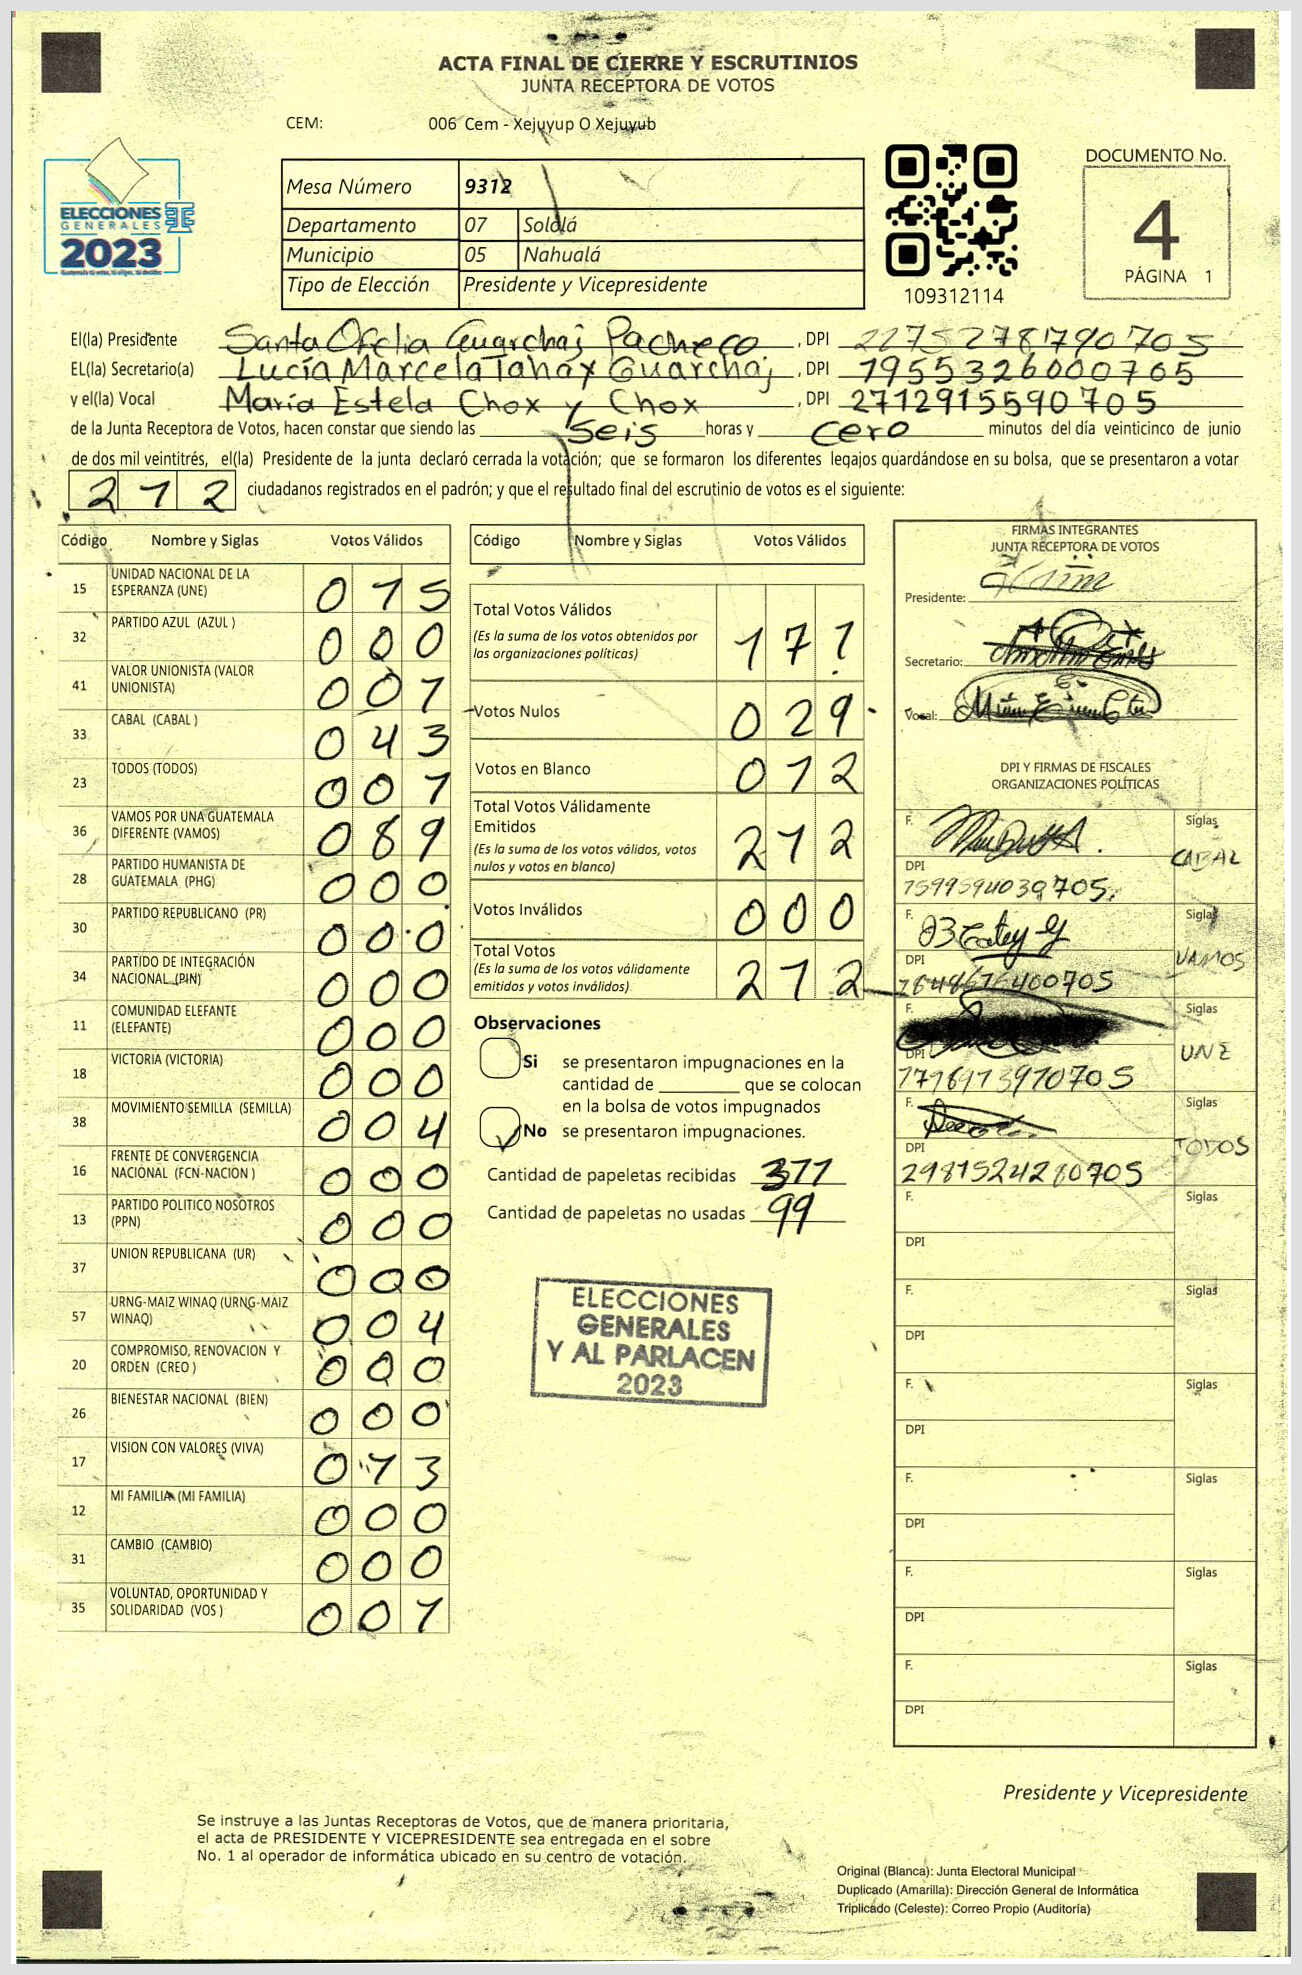 ACTA FINAL DE CIERRE Y ESCRUTINIOS
JUNTA RECEPTORA DE VOTOS
CEM: 006 Cem - Xejuyup O Xejuyub
ELECCIONES
GENERALES
2023
Mesa Número 9312
Departamento 07 Sololá
Municipio 05 Nahualá
Tipo de Elección Presidente y Vicepresidente
109312114
DOCUMENTO No.
4
PÁGINA 1
El(la) Presidente Santa Ofelia Guarchaj Pacheco, DPI 2275278790705
EL(la) Secretario(a) Lucía Marcela Tahay Guarchaj, DPI 1955326000705
y el(la) Vocal María Estela Chox y Chox, DPI 2712915590705
de la Junta Receptora de Votos, hacen constar que siendo las seis horas y cero minutos del día veinticinco de junio
de dos mil veintitrés, el(la) Presidente de la junta declaró cerrada la votación; que se formaron los diferentes legajos guardándose en su bolsa, que se presentaron a votar
212 ciudadanos registrados en el padrón; y que el resultado final del escrutinio de votos es el siguiente:
Código Nombre y Siglas Votos Válidos
15 UNIDAD NACIONAL DE LA ESPERANZA (UNE) 015
32 PARTIDO AZUL (AZUL ) 000
41 VALOR UNIONISTA (VALOR UNIONISTA) 001
33 CABAL (CABAL ) 043
23 TODOS (TODOS) 001
36 VAMOS POR UNA GUATEMALA DIFERENTE (VAMOS) 089
28 PARTIDO HUMANISTA DE GUATEMALA (PHG) 000
30 PARTIDO REPUBLICANO (PR) 000
34 PARTIDO DE INTEGRACIÓN NACIONAL (PIN) 000
11 COMUNIDAD ELEFANTE (ELEFANTE) 000
18 VICTORIA (VICTORIA) 000
38 MOVIMIENTO SEMILLA (SEMILLA) 004
16 FRENTE DE CONVERGENCIA NACIONAL (FCN-NACION ) 000
13 PARTIDO POLITICO NOSOTROS (PPN) 000
37 UNION REPUBLICANA (UR) 000
57 URNG-MAIZ WINAQ (URNG-MAIZ WINAQ) 004
20 COMPROMISO, RENOVACION Y ORDEN (CREO ) 000
26 BIENESTAR NACIONAL (BIEN) 000
17 VISION CON VALORES (VIVA) 013
12 MI FAMILIA (MI FAMILIA) 000
31 CAMBIO (CAMBIO) 000
35 VOLUNTAD, OPORTUNIDAD Y SOLIDARIDAD (VOS ) 001
Código Nombre y Siglas Votos Válidos
Total Votos Válidos 171
(Es la suma de los votos obtenidos por
las organizaciones políticas)
Votos Nulos 029
Votos en Blanco 012
Total Votos Válidamente
Emitidos 212
(Es la suma de los votos válidos, votos
nulos y votos en blanco)
Votos Inválidos 000
Total Votos 212
(Es la suma de los votos válidamente
emitidos y votos inválidos)
Observaciones
Si se presentaron impugnaciones en la
cantidad de que se colocan
en la bolsa de votos impugnados
No se presentaron impugnaciones.
Cantidad de papeletas recibidas 311
Cantidad de papeletas no usadas 99
ELECCIONES
GENERALES
Y AL PARLACEN
2023
FIRMAS INTEGRANTES
JUNTA RECEPTORA DE VOTOS
Presidente:
Secretario:
Vocal:
DPI Y FIRMAS DE FISCALES
ORGANIZACIONES POLÍTICAS
F. Siglas
CABAL
DPI
1599594030705
F. Siglas
VAMOS
DPI
F. Siglas
UNE
DPI
F. Siglas
TODOS
DPI
2981524280705
F. Siglas
DPI
F. Siglas
DPI
F. Siglas
DPI
F. Siglas
DPI
F. Siglas
DPI
F. Siglas
DPI
Presidente y Vicepresidente
Se instruye a las Juntas Receptoras de Votos, que de manera prioritaria,
el acta de PRESIDENTE Y VICEPRESIDENTE sea entregada en el sobre
No. 1 al operador de informática ubicado en su centro de votación.
Original (Blanca): Junta Electoral Municipal
Duplicado (Amarilla): Dirección General de Informática
Triplicado (Celeste): Correo Propio (Auditoría)